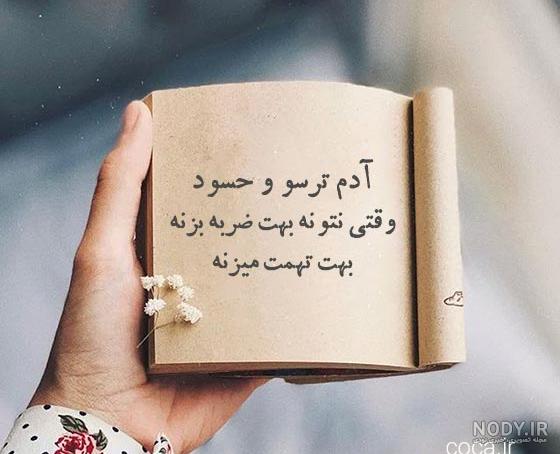 آدم ترسو و حسود
وقتی نتونه بهت ضربه بزنه
بهت تهمت میزنه
NODY.IR
coca.ir